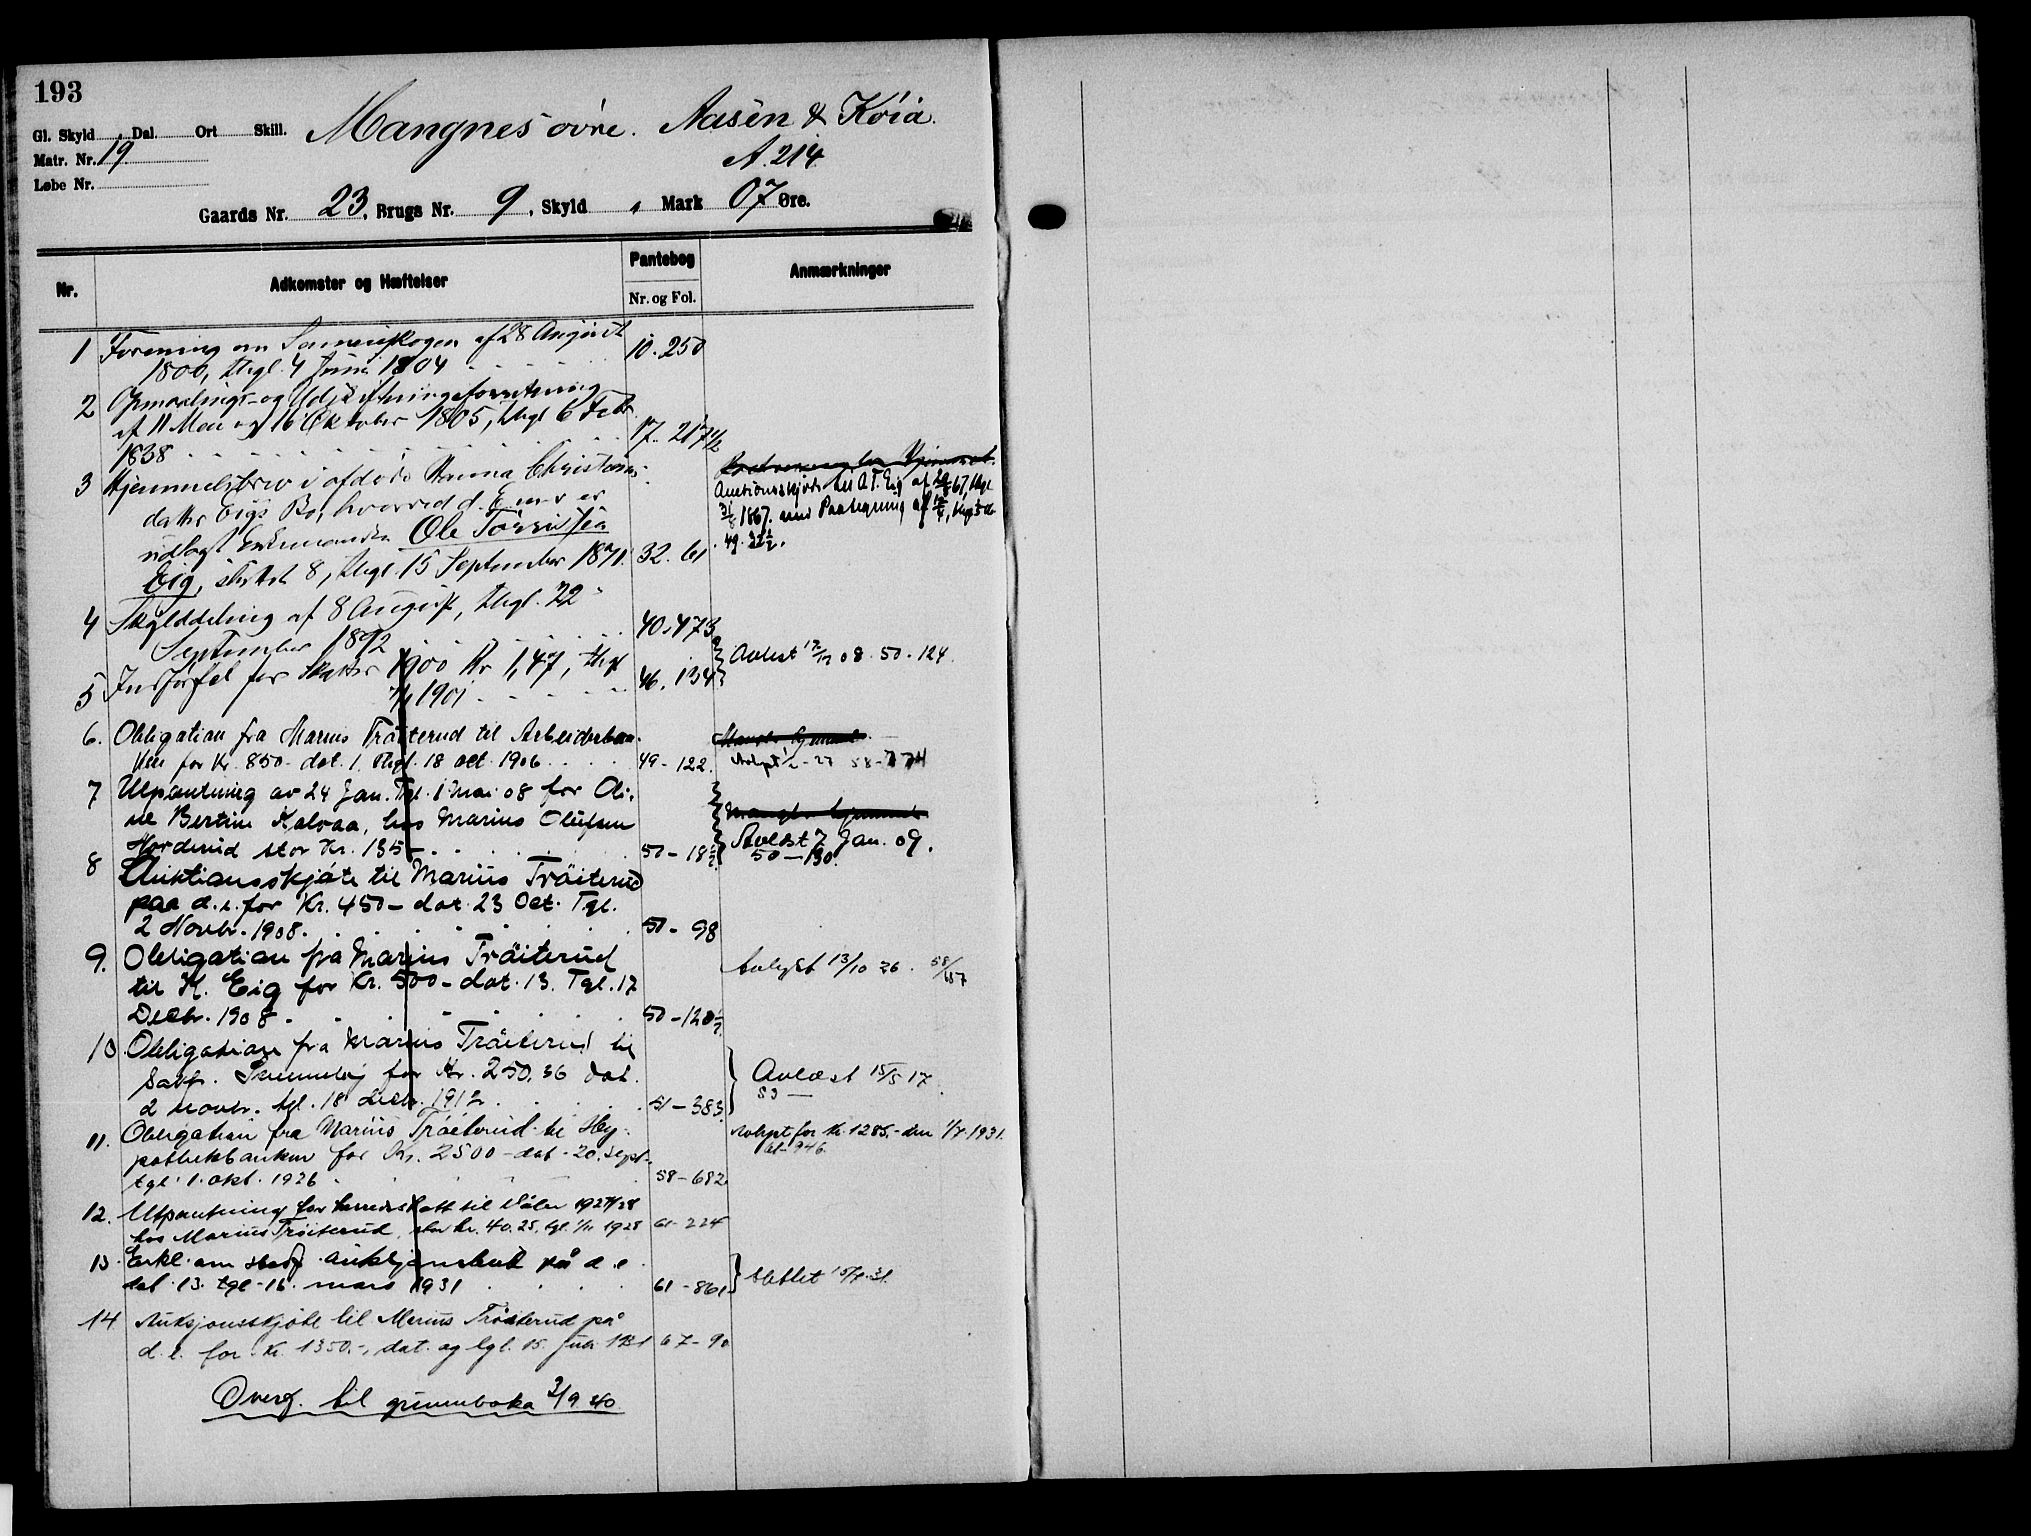 193
Gl. Skyld Dal. Ort Skill. Mangnes øvre. Aasen & Köia.
Matr. Nr. 19. A. 214
Løbe Nr.
Gaards Nr. 23, Brugs Nr. 9, Skyld Mark 07 Øre.
Nr. Adkomster og Hæftelser Pantebog Anmærkninger
Nr. og Fol.
1 Forening om af 28 August
1800, thgl. 4 Juni 1804 10. 250
2 Opmaalings- og Udskiftningsforretning
af 11 Mai og 16 Oktober 1805, thgl 6 Febr.
1838 17. 217 1/2
3 Hjemmelsbrev i afdøde Anna Christians-
datter Eigs Bo, hvorved d. E. er
udlagt Enkemanden Ole
Eig, sluttet 8, thgl. 15 September 1871. 32. 61
Auctionsskjøde til A. T. Eig af 67, thgl
1867. med Paategning af
49.
4 Skylddeling af 8 August, thgl. 22
September 1892 40. 473
5 Indførsel for Skatter 1900 Kr 1,47, thgl
1901 46. 134
Avlest 08. 50. 124.
6. Obligation fra Marius Tröiterud til Arbeiderban-
ken for Kr. 850- dat. 1. Thgl. 18 oct. 1906 49-122.
Avlyst 27 58-774
7 Utpantning av 24 Jan. Tgl. 1 Mai 08 for Oli-
ne Bertine Kalvaa, hos Marius Olufsen
Norderud stor Kr. 135- 50-18 1/2
Avlest 7 Jan. 09.
50-130.
8 Auktionsskjöte til Marius Tröiterud
paa d. e. for Kr. 450- dat. 23 Oct. Tgl.
2 Novbr. 1908. 50-98
9. Obligation fra Marius Tröiterud
til K. Eig for Kr. 500- dat. 13. Tgl. 17
Decbr. 1908. 50-120 1/2
Avlyst 13/10 26. 58/687
10. Obligation fra Marius Tröiterud til
Sakf. for Kr. 250.36 dat.
2 novbr. tgl. 18 decbr. 1912. 51-383.
Avlæst 15/5 17
53 —
11. Obligation fra Marius Tröiterud til Hy-
pothekbanken for Kr. 2500- dat. 20. sept.
tgl. 1. okt. 1926 58-682
Avlyst for Kr. 1285.- den 1/7. 1931.
61-946.
12. Utpantning for herredskatt til Våler 1927/28
hos Marius Tröiterud, stor kr. 40.25, tgl. 1928 61-224
13. Erkl. om auksjonsbud på d. e.
dat. 13. tgl. 16. mars 1931 61-861
Slettet 15/7. 31.
14. Auksjonsskjöte til Marius Tröiterud på
d. e. for kr. 1350.-, dat. og tgl. 15. 1931 67-90
Overf. til grunnboka 3/9 40.